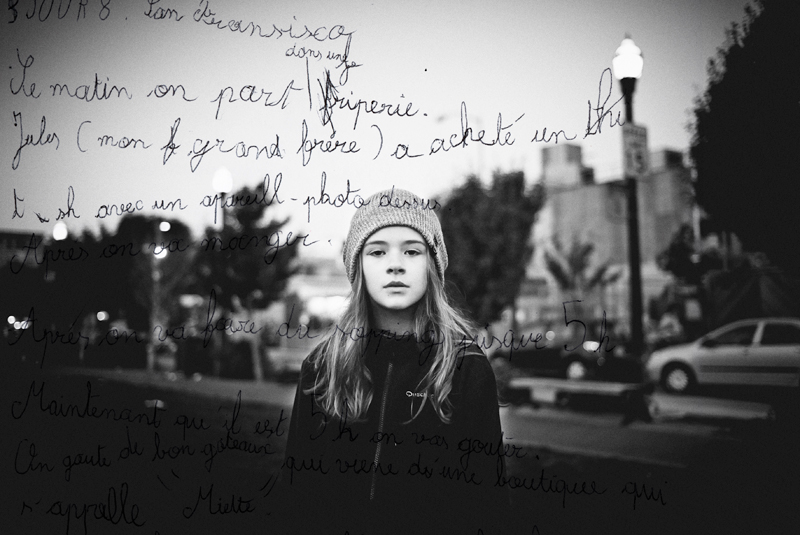 JOUR 8. San Fransisco
dans une
Le matin on part friperie.
Jules (mon grand frère) a acheté un thi
t sh avec un apareill-photo dessus
Après on va manger.
Après on va faire du sopping jusque 5 h
Maintenant qu'il est 5 h on vas goûter.
On goute de bon gâteaux qui viene d'une boutique qui
s'appalle "Miette".